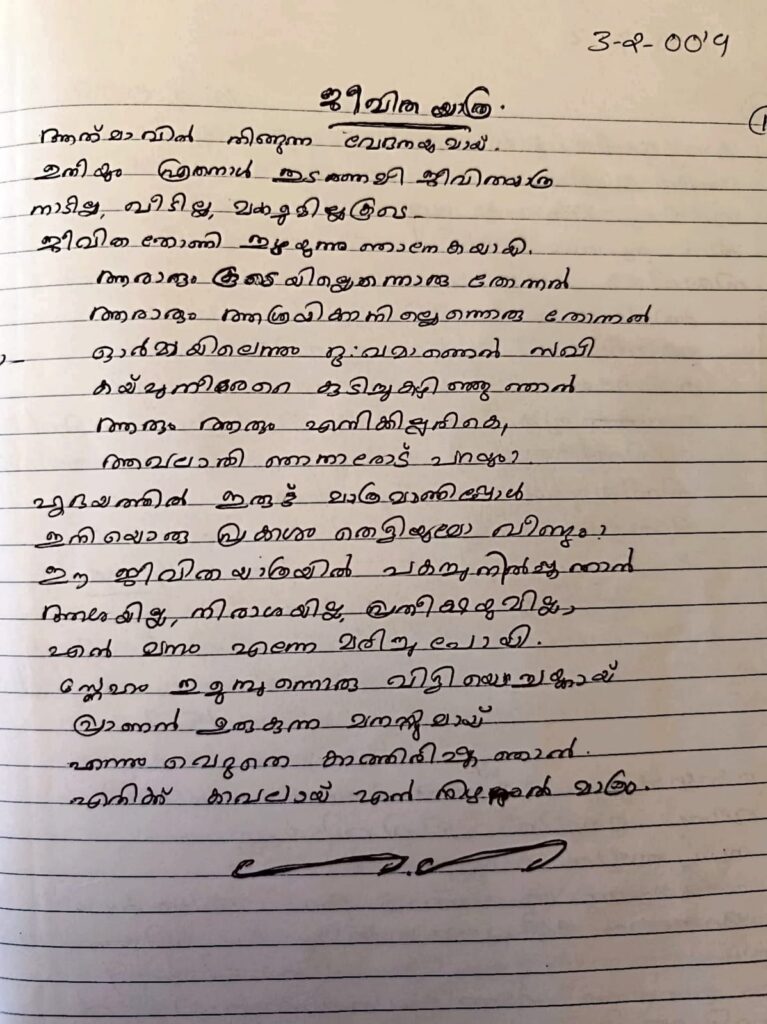 3-2-00'9
ജീവിത യാത്ര.
ആത്മാവിൽ നിങ്ങുന്ന വേദനയുമായ്.
ഇനിയും എത്രനാൾ തുടരണമീ ജീവിതയാത്ര
നാടില്ല, വീടില്ല, മക്കളുമില്ലകൂടെ
ജീവിത തോണി തുഴയുന്നു ഞാനേകയായി.
ആരാരും കൂടെയില്ലെന്നൊരു തോന്നൽ
ആരാരും ആശ്രയിക്കാനില്ലെന്നൊരു തോന്നൽ
ഓർമ്മയിലെന്നും ദുഃഖമാണെൻ സഖി
കയ്പുനീരേറെ കുടിച്ചുകഴിഞ്ഞു ഞാൻ
ആരും ആരും എനിക്കില്ലരികെ,
അഖലാതി ഞാനാരോട് പറയും?
ഹൃദയത്തിൽ ഇരുട്ട് മാത്രമാണിപ്പോൾ
ഇനിയൊരു പ്രകാശം തെളിയുമോ വീണ്ടും?
ഈ ജീവിത യാത്രയിൽ പകച്ചുനിൽപ്പൂ ഞാൻ
ആശയില്ല, നിരാശയില്ല, പ്രതീക്ഷയുമില്ല,
എൻ മനം എന്നേ മരിച്ചു പോയി.
സ്നേഹം തുളുമ്പുന്നൊരു വിളി
പ്രാണൻ ഉരുകുന്ന മനസ്സുമായ്
എന്നും വെറുതെ കാത്തിരിപ്പൂ ഞാൻ.
എനിക്ക് കാവലായ് എൻ നിഴൽ മാത്രം.